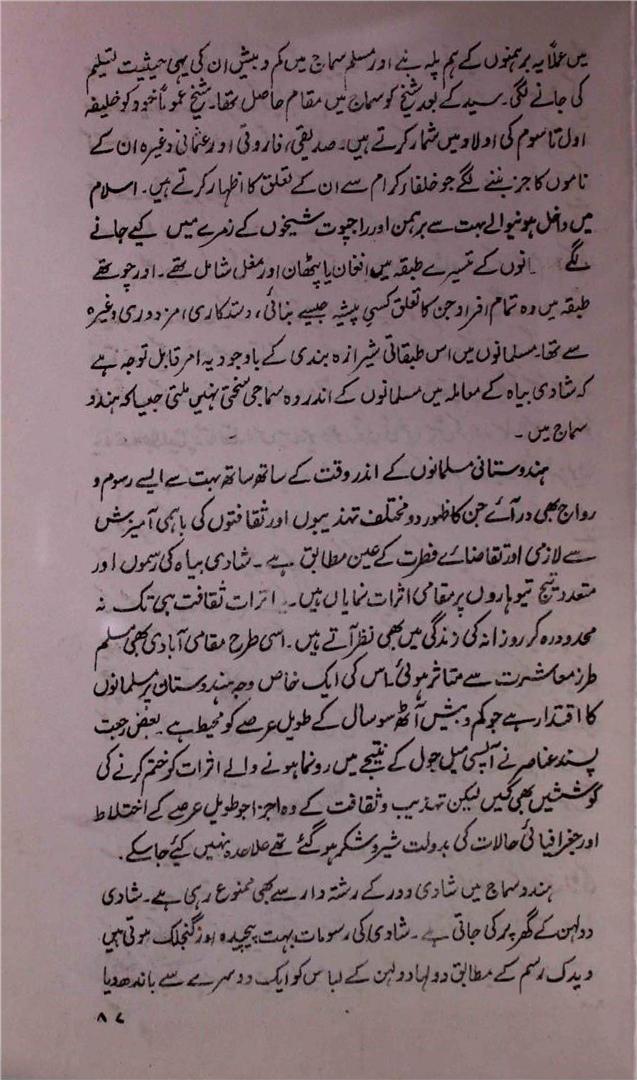 میں عملاً یہ برہمنوں کے ہم پلہ بنے اور مسلم سماج میں کم و بیش ان کی یہی حیثیت تسلیم
کی جانے لگی۔ سید کے بعد شیخ کو سماج میں مقام حاصل تھا۔ شیخ عموماً خود کو خلیفہ
اول تا سوم کی اولاد میں شمار کرتے ہیں۔ صدیقی، فاروقی اور عثمانی وغیرہ ان کے
ناموں کا جز بننے لگے جو خلفاء کرام سے ان کے تعلق کا اظہار کرتے ہیں۔ اسلام
میں داخل ہونیوالے بہت سے برہمن اور راجپوت شیخوں کے زمرے میں کیے جانے
لگے انوں کے تیسرے طبقہ میں افغان یا پٹھان اور مغل شامل تھے۔ اور چوتھے
طبقہ میں وہ تمام افراد جن کا تعلق کسی پیشہ جیسے بنائی، دستکاری، مزدوری وغیرہ
سے تھا۔ مسلمانوں میں اس طبقاتی شیرازہ بندی کے باوجود یہ امر قابل توجہ ہے
کہ شادی بیاہ کے معاملہ میں مسلمانوں کے اندر وہ سماجی سختی نہیں ملتی جیسا کہ ہندو
سماج میں۔
ہندوستانی مسلمانوں کے اندر وقت کے ساتھ ساتھ بہت سے ایسے رسوم و
رواج بھی در آئے جن کا ظہور دو مختلف تہذیبوں اور ثقافتوں کی باہمی آمیزش
سے لازمی اور تقاضائے فطرت کے عین مطابق ہے۔ شادی بیاہ کی رسموں اور
متعدد تیج تیوہاروں پر مقامی اثرات نمایاں ہیں۔ اثرات ثقافت ہی تک نہ
محدود رہ کر روزانہ کی زندگی میں بھی نظر آتے ہیں۔ اسی طرح مقامی آبادی بھی مسلم
طرز معاشرت سے متاثر ہوئی۔ اس کی ایک خاص وجہ ہندوستان پر مسلمانوں
کا اقتدار ہے جو کم و بیش آٹھ سو سال کے طویل عرصے کو محیط ہے۔ بعض رجعت
پسند عناصر نے آپسی میل جول کے نتیجے میں رونما ہونے والے اثرات کو ختم کرنے کی
کوششیں بھی کیں لیکن تہذیب و ثقافت کے وہ اجزا جو طویل عرصے کے اختلاط
اور جغرافیائی حالات کی بدولت شیر و شکر ہو گئے تھے علاحدہ نہیں کیے جا سکے۔
ہندو سماج میں شادی دور کے رشتہ دار سے بھی ممنوع رہی ہے۔ شادی
دولہن کے گھر پر کی جاتی ہے۔ شادی کی رسومات بہت پیچیدہ اور گنجلک ہوتی ہیں
ویدک رسم کے مطابق دولہا دولہن کے لباس کو ایک دوسرے سے باندھ دیا
۸۷